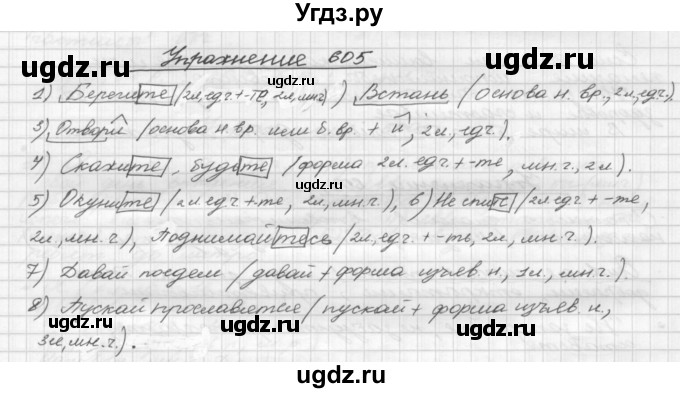 Угдз.ру
Упражнение 605
1) Берегите (2л, ед.ч. + -те, 2л, мн.ч.) ) Встань (основа н. вр., 2л, ед.ч.)
3) Отвори (основа н. вр. или б. вр. + и, 2л, ед.ч.).
4) Скажите, будьте (форма 2л. ед.ч. + -те, мн.ч., 2л).
5) Окуните (2л. ед.ч. + те, 2л, мн.ч.), 6) Не спите (2л. ед.ч. + -те,
2л, мн.ч.), Поднимайтесь (2л, ед.ч. + -ть, 2л, мн.ч.).
7) Давай поедем (давай + форма изъяв. н, 1л, мн.ч.).
8) Пускай прославятся (пускай + форма изъяв. н,
3л, мн.ч.).
ugdz.ru
ugdz.ru
ugdz.ru
ugdz.ru
ugdz.ru
ugdz.ru
ugdz.ru
ugdz.ru
ugdz.ru
ugdz.ru
ugdz.ru
ugdz.ru
ugdz.ru
ugdz.ru